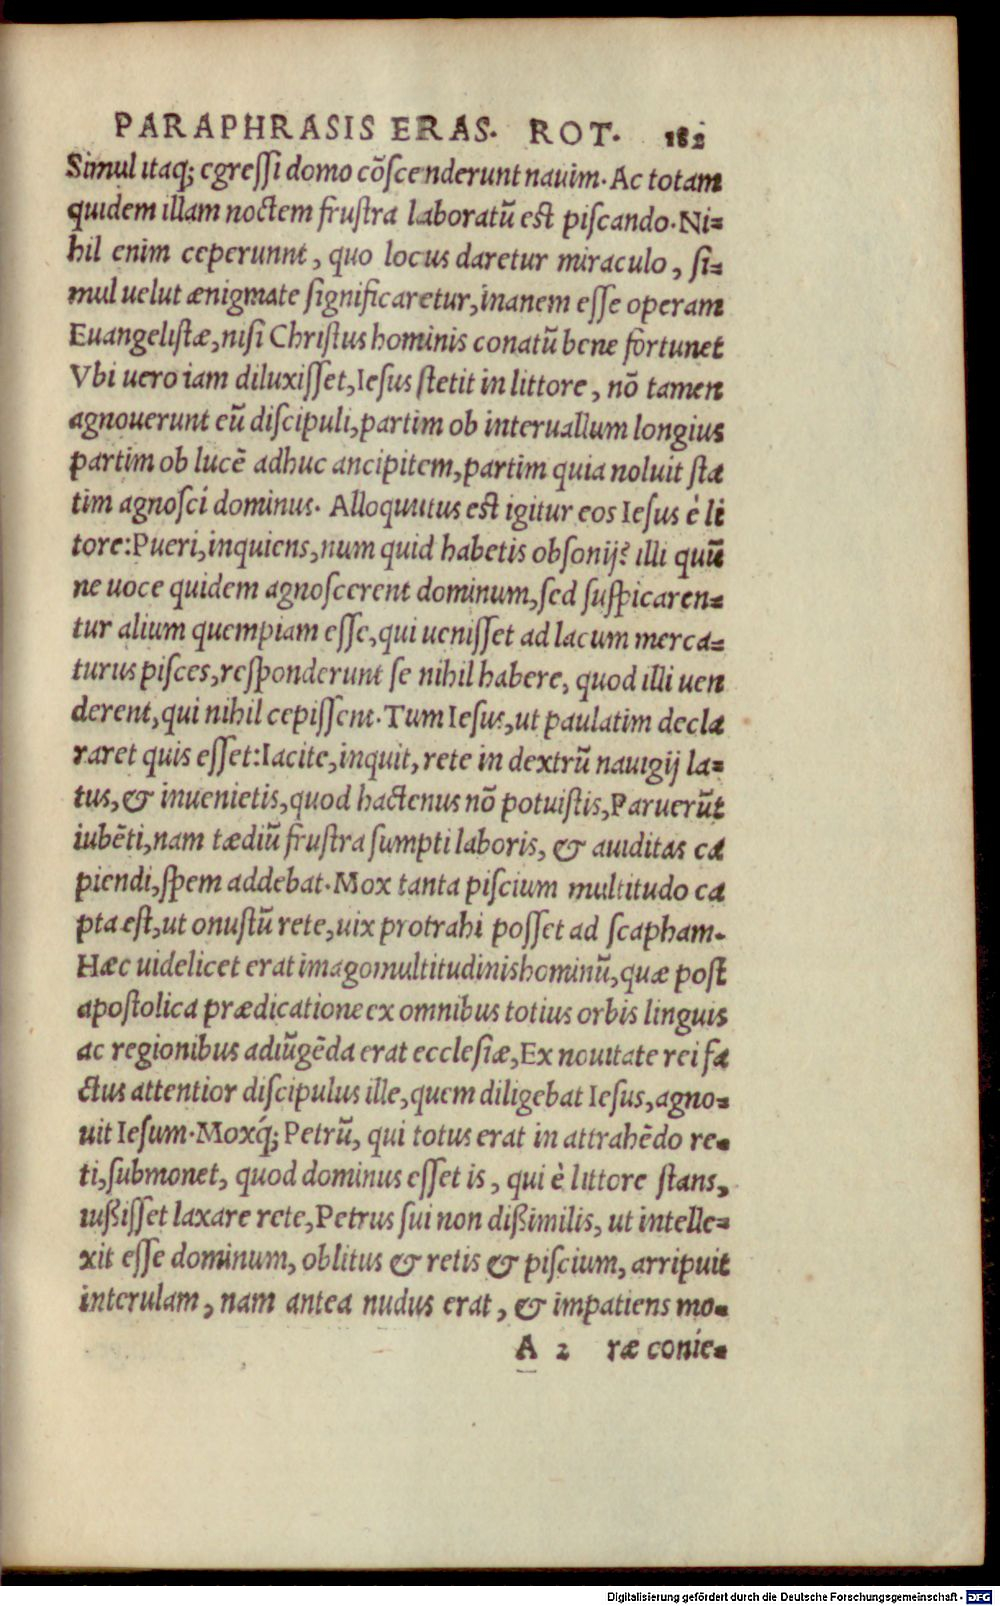 PARAPHRASIS ERAS. ROT. 182
Simul itaq; egreſſi domo cõſcenderunt nauim. Ac totam
quidem illam noctem fruſtra laboratũ eſt piſcando. Ni=
hil enim ceperunnt, quo locus daretur miraculo, ſi=
mul uelut ænigmate ſignificaretur, inanem eſſe operam
Euangeliſtæ, niſi Chriſtus hominis conatũ bene fortunet
Vbi uero iam diluxiſſet, Ieſus ſtetit in littore, nõ tamen
agnouerunt eũ diſcipuli, partim ob interuallum longius
partim ob lucẽ adhuc ancipitem, partim quia noluit ſta
tim agnoſci dominus. Alloquutus eſt igitur eos Ieſus è li
tore: Pueri, inquiens, num quid habetis obſonij? illi quũ
ne uoce quidem agnoſcerent dominum, ſed ſuſpicaren=
tur alium quempiam eſſe, qui ueniſſet ad lacum merca=
turus piſces, reſponderunt ſe nihil habere, quod illi uen
derent, qui nihil cepiſſent. Tum Ieſus, ut paulatim decla
raret quis eſſet: Iacite, inquit, rete in dextrũ nauigij la=
tus, & inuenietis, quod hactenus nõ potuiſtis, Paruerũt
iubẽti, nam tædiũ fruſtra ſumpti laboris, & auiditas ca
piendi, ſpem addebat. Mox tanta piſcium multitudo ca
pta eſt, ut onuſtũ rete, uix protrahi poſſet ad ſcapham.
Hæc uidelicet erat imago multitudinis hominũ, quæ poſt
apoſtolica prædicatione ex omnibus totius orbis linguis
ac regionibus adiũgẽda erat eccleſiæ, Ex nouitate rei fa
ctus attentior diſcipulus ille, quem diligebat Ieſus, agno=
uit Ieſum. Moxq́; Petrũ, qui totus erat in attrahẽdo re=
ti, ſubmonet, quod dominus eſſet is, qui è littore ſtans,
iußiſſet laxare rete, Petrus ſui non dißimilis, ut intelle=
xit eſſe dominum, oblitus & retis & piſcium, arripuit
interulam, nam antea nudus erat, & impatiens mo=
A 2 ræ conie=
Digitalisierung gefördert durch die Deutsche Forschungsgemeinschaft - DFG